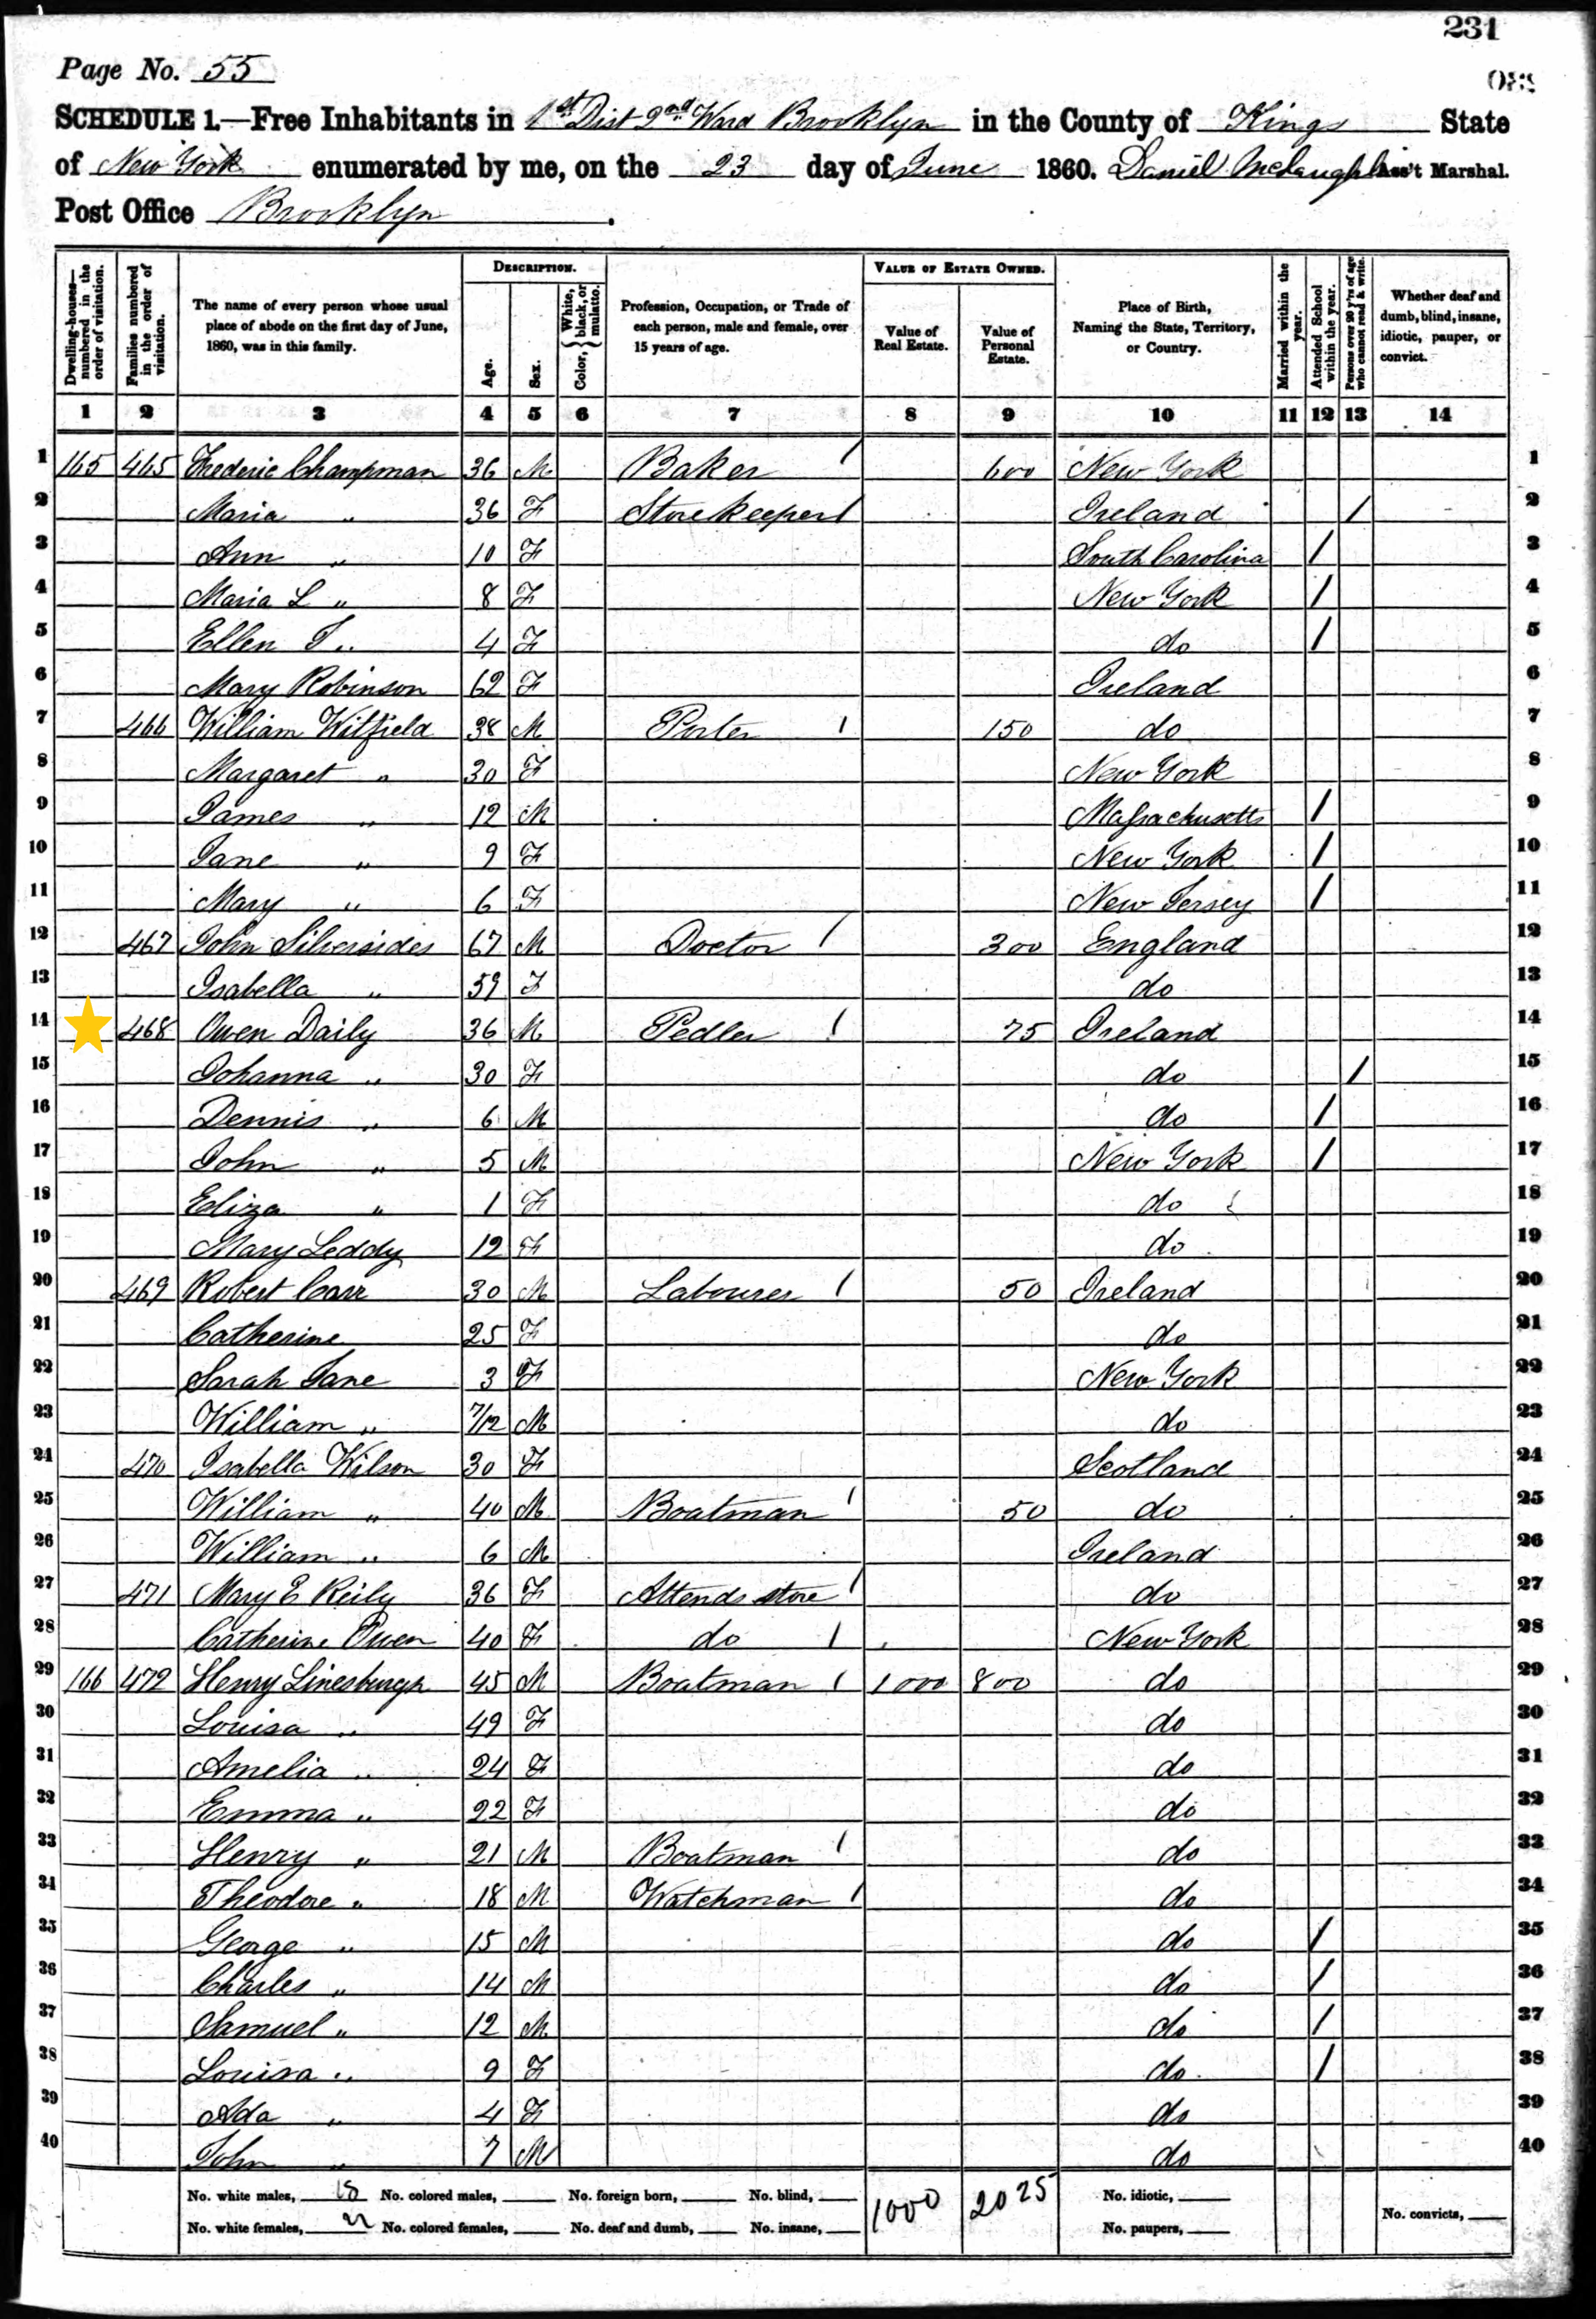 231
Page No. 55
SCHEDULE 1.—Free Inhabitants in 1st Dist 2nd Ward Brooklyn in the County of Kings State
of New York enumerated by me, on the 23 day of June 1860. Daniel McLaughlin Ass't Marshal.
Post Office Brooklyn.
Dwelling-houses—numbered in the order of visitation.
Families numbered in the order of visitation.
The name of every person whose usual place of abode on the first day of June, 1860, was in this family.
DESCRIPTION.
Age.
Sex.
Color, { White, black, or mulatto.
Profession, Occupation, or Trade of each person, male and female, over 15 years of age.
VALUE OF ESTATE OWNED.
Value of Real Estate.
Value of Personal Estate.
Place of Birth, Naming the State, Territory, or Country.
Married within the year.
Attended School within the year.
Persons over 20 y'rs of age who cannot read & write.
Whether deaf and dumb, blind, insane, idiotic, pauper, or convict.
1 2 3 4 5 6 7 8 9 10 11 12 13 14
1 165 465 Frederic Champman 36 M Baker / 600 New York 1
2 Maria " 36 F Storekeeper / Ireland / 2
3 Ann " 10 F South Carolina / 3
4 Maria L " 8 F New York / 4
5 Ellen J " 4 F do / 5
6 Mary Robinson 62 F Ireland 6
7 466 William Witfield 38 M Porter / 150 do 7
8 Margaret " 30 F New York 8
9 James " 12 M Massachusetts / 9
10 Jane " 9 F New York / 10
11 Mary " 6 F New Jersey / 11
12 467 John Silversides 67 M Doctor / 300 England 12
13 Isabella " 59 F do 13
14 468 Owen Daily 36 M Pedler / 75 Ireland 14
15 Johanna " 30 F do / 15
16 Dennis " 6 M do / 16
17 John " 5 M New York / 17
18 Eliza " 1 F do 18
19 Mary Leddy 12 F do 19
20 469 Robert Carr 30 M Labourer / 50 Ireland 20
21 Catherine 25 F do 21
22 Sarah Jane 3 F New York 22
23 William " 7/12 M do 23
24 470 Isabella Wilson 30 F Scotland 24
25 William " 40 M Boatman / 50 do 25
26 William " 6 M Ireland 26
27 471 Mary E Reily 36 F Attends store / do 27
28 Catherine Owen 40 F do / New York 28
29 166 472 Henry Linesburgh 45 M Boatman / 1000 800 do 29
30 Louisa " 49 F do 30
31 Amelia " 24 F do 31
32 Emma " 22 F do 32
33 Henry " 21 M Boatman / do 33
34 Theodore " 18 M Watchman / do 34
35 George " 15 M do / 35
36 Charles " 14 M do / 36
37 Samuel " 12 M do / 37
38 Louisa " 9 F do / 38
39 Ada " 4 F do 39
40 John " 7 M do 40
No. white males, 18 No. colored males, No. foreign born, No. blind, 1000 2025 No. idiotic,
No. white females, 22 No. colored females, No. deaf and dumb, No. insane, No. paupers, No. convicts,